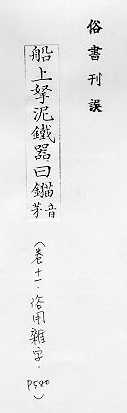 俗書刊誤
船上拏泥鐵器曰錨音茅
(卷十一.俗用雜字.P580)